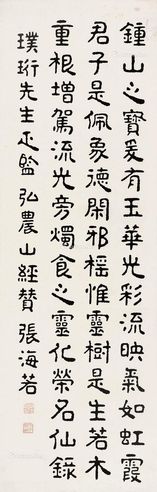 鍾山之寶爰有玉華光彩流映氣如虹霞
君子是佩象德閑邪榣惟靈樹是生若木
重根增駕流光旁燭食之靈化榮名仙錄
璞珩先生正監 弘農山經贊 張海若